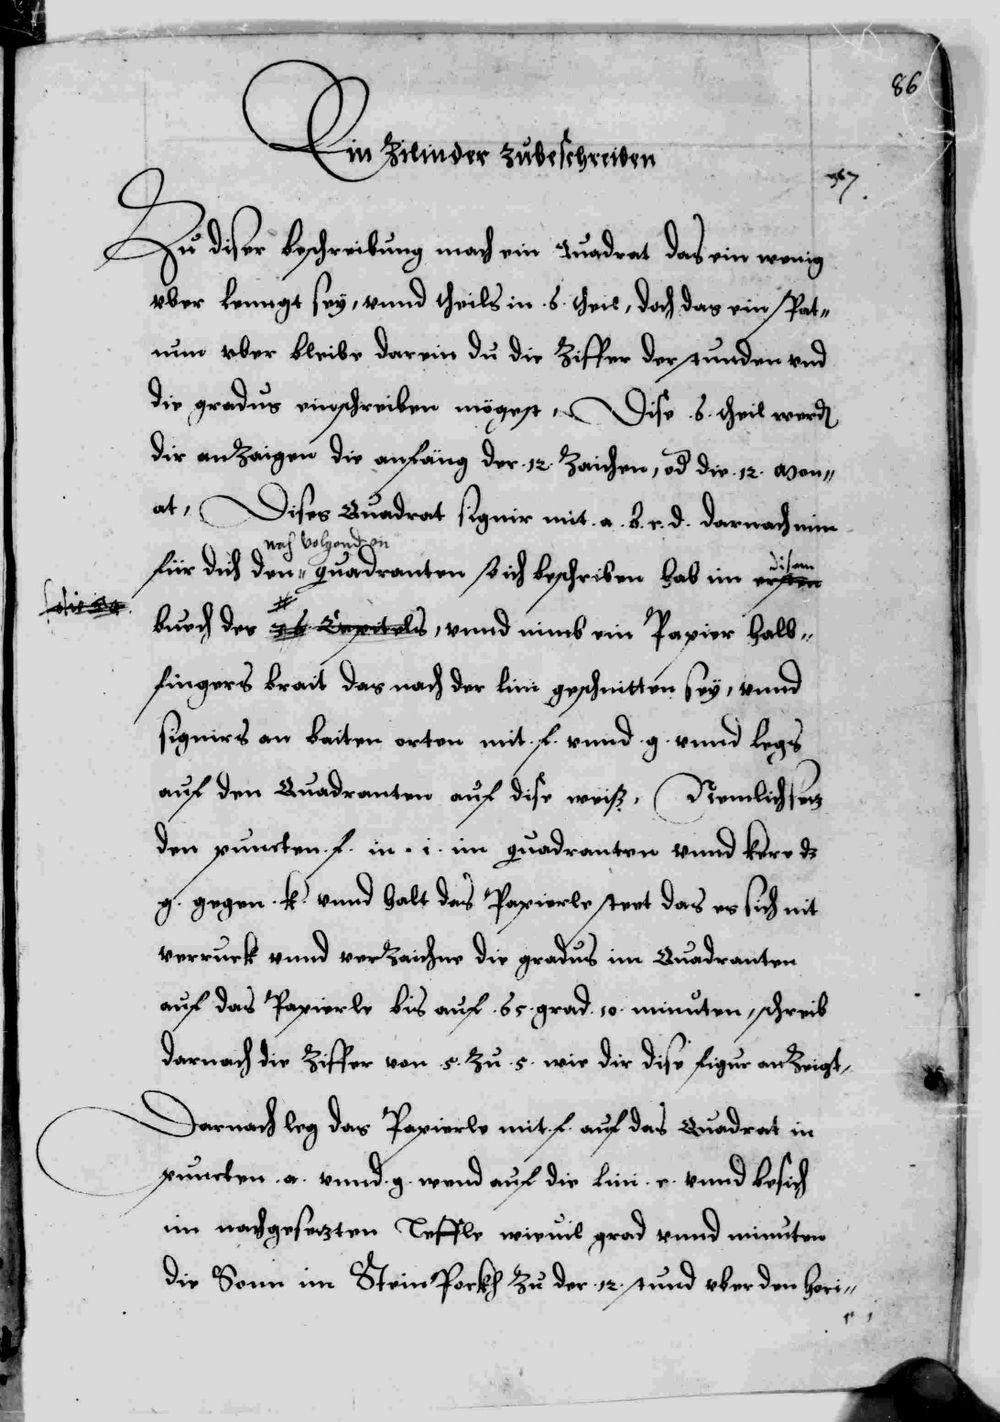 86
Ein Zilinder zubeschreiben
37.
Zu diser beschreibung mach ein Quadrat das ein wenig
vber lenngt seÿ, vnnd theils in .6. theil, doch das ein spat-
ium vber bleibe darein du die Ziffer der stunden vnd
die gradus einschreiben mögest, Dise .6. theil werdn
dir anzaigen die anfäng der .12. Zaichen, od die .12. Mon-
at, Dises Quadrat signir mit .a.b.c.d. darnach nim
nach volgenden
für dich den quadranten so ich beschriben hab im ersten
disem
buech des 36 Capitels, vnnd nimb ein Papier halb-
fingers brait das nach der lini geschnitten seÿ, vnnd
signirs an baiten orten mit .f. vnnd .g. vnnd legs
auf den Quadranten auf dise weiß, Nemlich setz
den puncten .f. in .i. im quadranten vnnd kere dz
g. gegen .k. vnnd halt das Papierle steet das es sich nit
verruck vnnd verzaichne die gradus im Quadranten
auf das Papierle bis auf .65. grad .10. minuten, schreib
darnach die Ziffer von .5. zu .5. wie dir dise figur anzeigt,
Darnach leg das Papierle mit .f. auf das Quadrat in
puncten .a. vnnd .g. wend auf die lini .c. vnnd besich
im nachgesetzten Teffle wieuil grad vnnd minuten
die Sonn im Stein Pockh zu der .12. stund vber den hori-